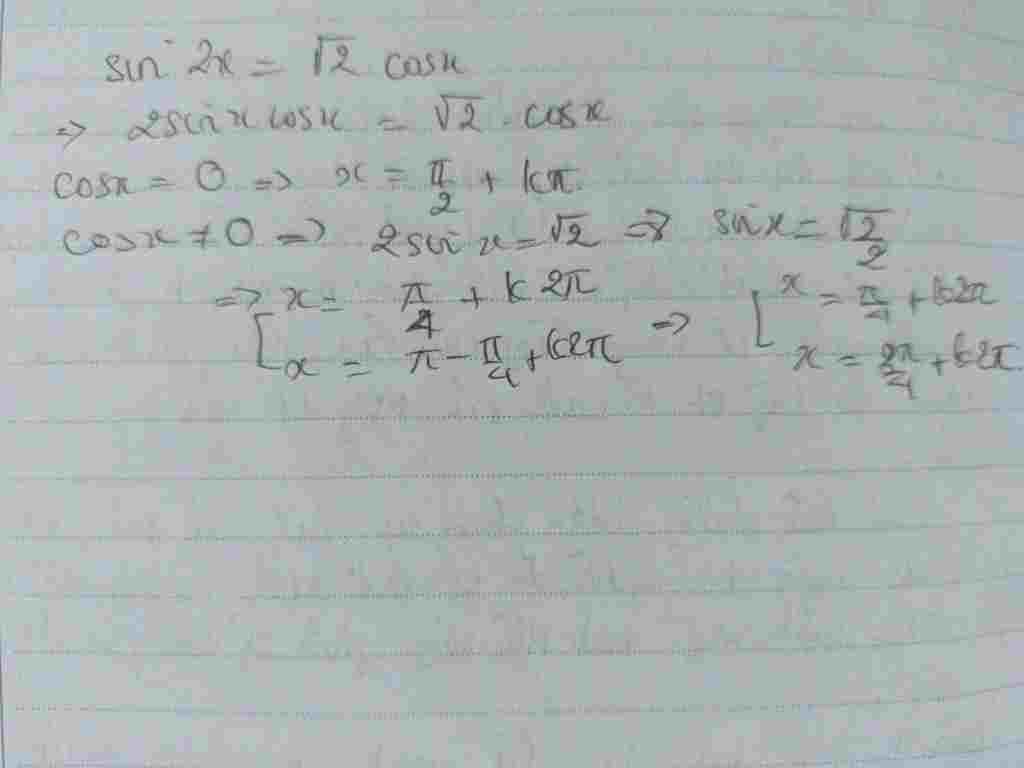 sin 2x = √2 cosx
=> 2sinxcosx = √2 . cosx
cosx = 0 => x = π/2 + kπ.
cosx ≠ 0 => 2sinx = √2 => sinx = √2/2
=> [ x = π/4 + k2π
x = π - π/4 + k2π => [ x = π/4 + k2π
x = 3π/4 + k2π.